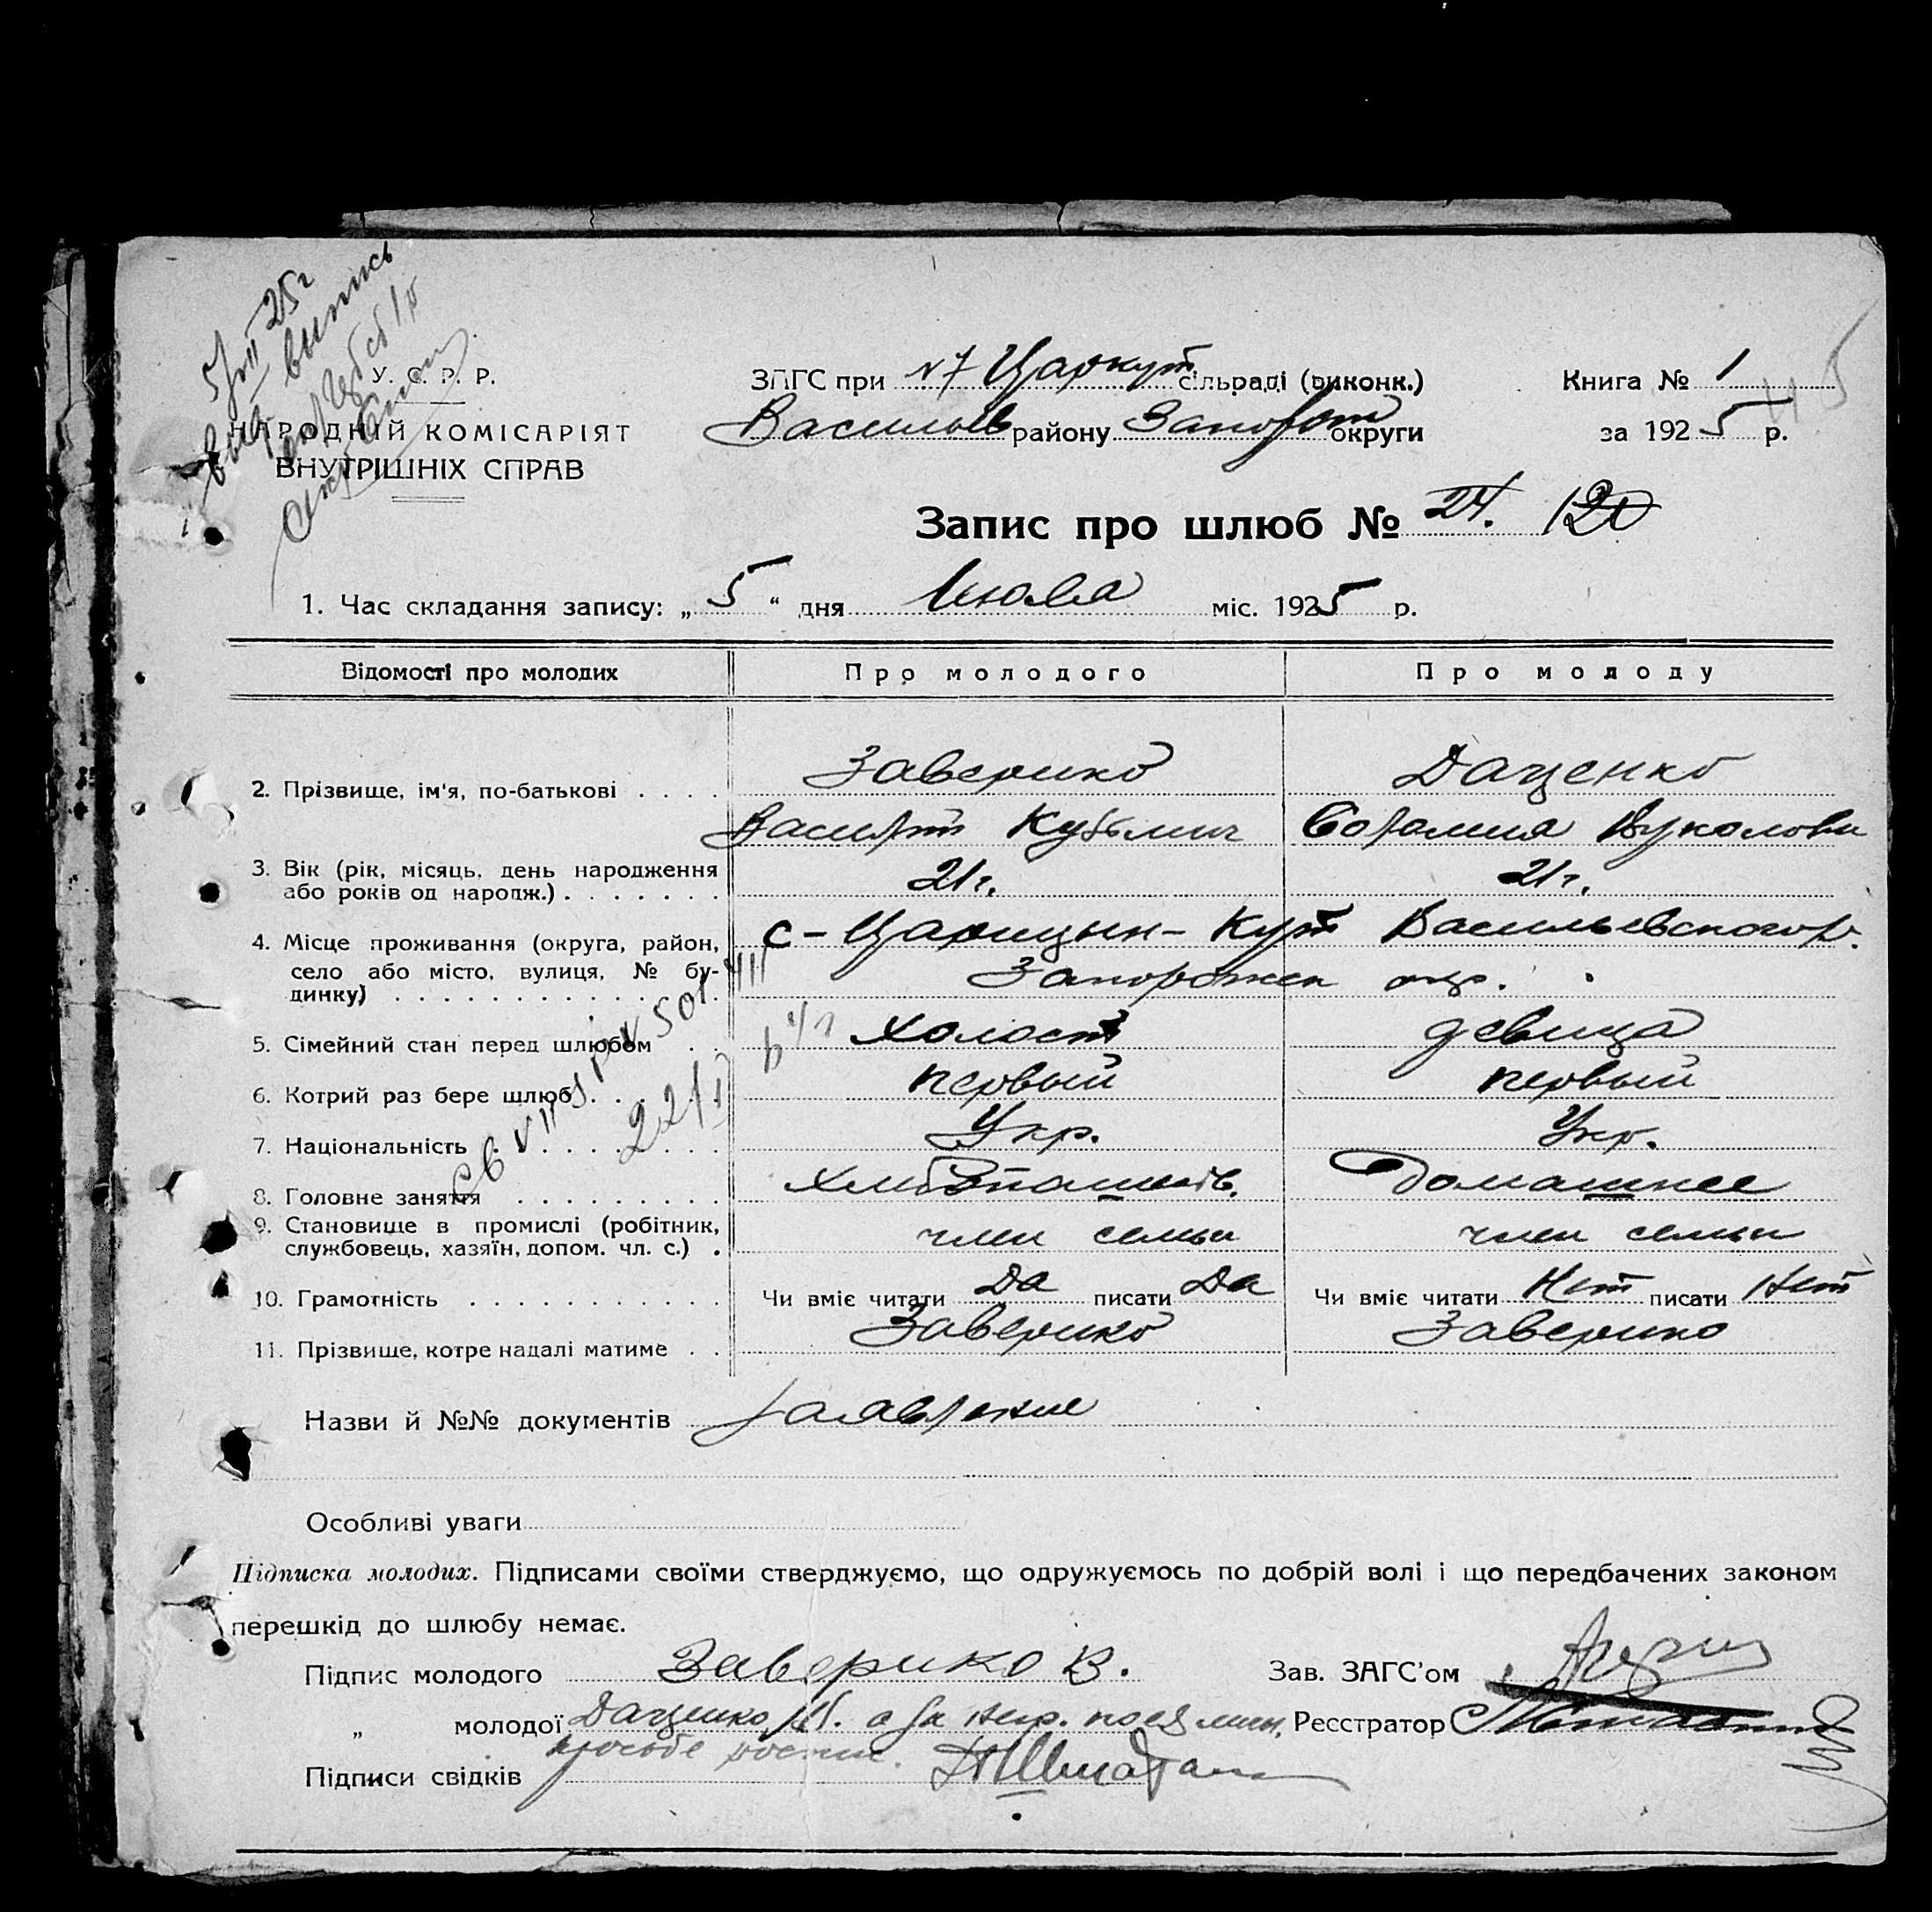 5/VII 25г
выпись
У. С. Р. Р.
НАРОДНІЙ КОМІСАРІЯТ
ВНУТРІШНІХ СПРАВ
ЗАГС при №7 Царкут сільраді (виконк.)
Васильев району Запорож округи
Книга № 1
за 1925 р.
45
Запис про шлюб № 24. 120
1. Час складання запису: „ 5 “ дня Июля міс. 1925 р.
Відомості про молодих Про молодого Про молоду
2. Прізвище, ім'я, по-батькові . . . . Заверико Даценко
Кузьмич
3. Вік (рік, місяць, день народження
або років од народж.) . . . . . . . 21 г. 21 г.
4. Місце проживання (округа, район, с-Царицын-Кут Васильевского р.
село або місто, вулиця, № бу- Запорожск окр.
динку)
5. Сімейний стан перед шлюбом . . Холост девица
6. Котрий раз бере шлюб . . . первый первый
7. Національність . . . . . . . Укр. Укр.
22/I
8. Головне заняття . . . . . . . . . Домашнее
9. Становище в промислі (робітник,
службовець, хазяїн, допом. чл. с.) . член семьи член семьи
10. Грамотність . . . . . . . . . . . Чи вміє читати Да писати Да Чи вміє читати Нет писати Нет
11. Прізвище, котре надалі матиме . . Заверико Заверико
Назви й №№ документів Заявление
Особливі уваги
Підписка молодих. Підписами своїми стверджуємо, що одружуємось по добрій волі і що передбачених законом
перешкід до шлюбу немає.
Підпис молодого Заверико В. Зав. ЗАГС'ом
„ молодої Даценко а за негр. по её личн. Реєстратор
просьбе роспис.
Підписи свідків